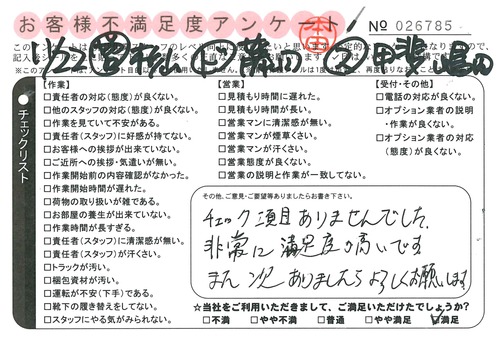 お客様不満足度アンケート
No 026785
チェックリスト
【作業】
□責任者の対応(態度)が良くない。
□他のスタッフの対応(態度)が良くない。
□作業を見ていて不安がある。
□責任者(スタッフ)に好感が持てない。
□お客様への挨拶が出来ていない。
□ご近所への挨拶・気遣いが無い。
□作業開始前の内容確認がなかった。
□作業開始時間が遅れた。
□荷物の取り扱いが雑である。
□お部屋の養生が出来ていない。
□作業時間が長すぎる。
□責任者(スタッフ)に清潔感が無い。
□責任者(スタッフ)が汗くさい。
□トラックが汚い。
□梱包資材が汚い。
□運転が不安(下手)である。
□靴下の履き替えをしてない。
□スタッフにやる気がみられない。
【営業】
□見積もり時間に遅れた。
□見積もり時間が長い。
□営業マンに清潔感が無い。
□営業マンが煙草くさい。
□営業マンが汗くさい。
□営業態度が良くない。
□営業の説明と作業が一致してない。
【受付・その他】
□電話の対応が良くない。
□オプション業者の説明・作業が良くない。
□オプション業者の対応(態度)が良くない。
その他、ご意見・ご要望等ありましたらお書き下さい。
チェック項目ありませんでした。
非常に満足度の高いです
また次ありましたらよろしくお願いします
☆当社をご利用いただきまして、ご満足いただけたでしょうか?
□不満 □やや不満 □普通 □やや満足 ☑満足